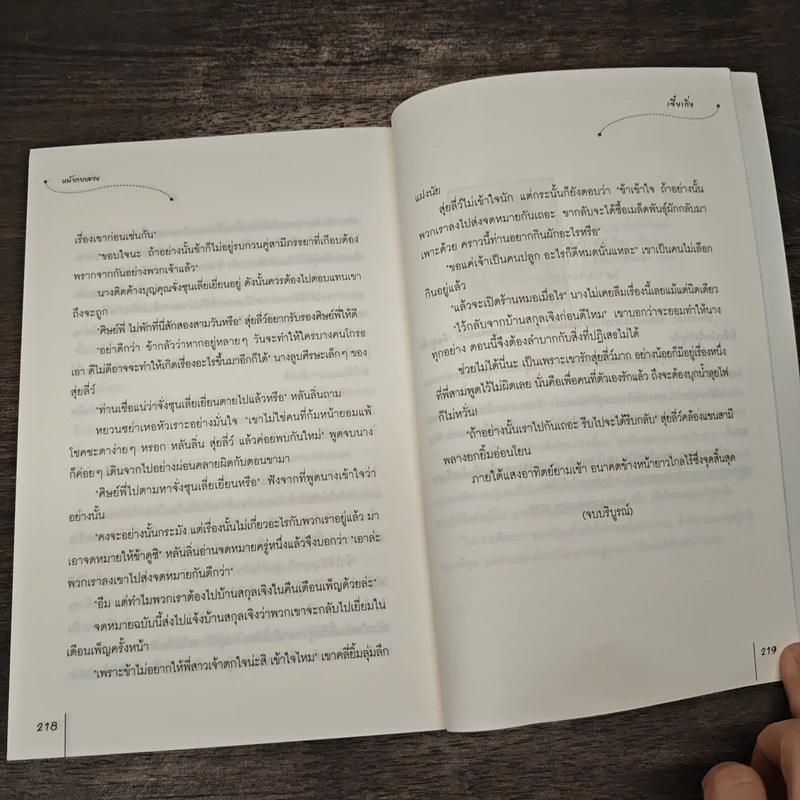 หน้ากากลวง
เรื่องเขาก่อนเช่นกัน"
"ขอบใจนะ ถ้าอย่างนั้นข้าก็ไม่อยู่รบกวนคู่สามีภรรยาที่เกือบต้อง
พรากจากกันอย่างพวกเจ้าแล้ว"
นางติดค้างบุญคุณจั่งซุนเลี่ยเยี่ยนอยู่ ดังนั้นควรต้องไปตอบแทนเขา
ถึงจะถูก
"ศิษย์พี่ ไม่พักที่นี่สักสองสามวันหรือ" สุ่ยลี่ว์อยากรับรองศิษย์พี่ให้ดี
"อย่าดีกว่า ข้ากลัวว่าหากอยู่หลายๆ วันจะทำให้ใครบางคนโกรธ
เอา ดีไม่ดีอาจจะทำให้เกิดเรื่องอะไรขึ้นมาอีกก็ได้" นางลูบศีรษะเล็กๆ ของ
สุ่ยลี่ว์
"ท่านเชื่อแน่ว่าจั่งซุนเลี่ยเยี่ยนตายไปแล้วหรือ" หลันลิ่นถาม
หยวนซย่าเหอหัวเราะอย่างมั่นใจ "เขาไม่ใช่คนที่ก้มหน้ายอมแพ้
โชคชะตาง่ายๆ หรอก หลันลิ่น สุ่ยลี่ว์ แล้วค่อยพบกันใหม่" พูดจบนาง
ก็ค่อยๆ เดินจากไปอย่างผ่อนคลายผิดกับตอนขามา
"ศิษย์พี่ไปตามหาจั่งซุนเลี่ยเยี่ยนหรือ" ฟังจากที่พูดนางเข้าใจว่า
อย่างนั้น
"คงจะอย่างนั้นกระมัง แต่เรื่องนั้นไม่เกี่ยวอะไรกับพวกเราอยู่แล้ว มา
เอาจดหมายให้ข้าดูซิ" หลันลิ่นอ่านจดหมายครู่หนึ่งแล้วจึงบอกว่า "เอาล่ะ
พวกเราลงเขาไปส่งจดหมายกันดีกว่า"
"อืม แต่ทำไมพวกเราต้องไปบ้านสกุลเจิงในคืนเดือนเพ็ญด้วยล่ะ"
จดหมายฉบับนี้ส่งไปแจ้งบ้านสกุลเจิงว่าพวกเขาจะกลับไปเยี่ยมใน
เดือนเพ็ญครั้งหน้า
"เพราะข้าไม่อยากให้พี่สาวเจ้าตกใจน่ะสิ เข้าใจไหม" เขาคลี่ยิ้มลุ่มลึก
218
เชี้ยเกิง
แฝงนัย
สุ่ยลี่ว์ไม่เข้าใจนัก แต่กระนั้นก็ยังตอบว่า "ข้าเข้าใจ ถ้าอย่างนั้น
พวกเราลงไปส่งจดหมายกันเถอะ ขากลับจะได้ซื้อเมล็ดพันธุ์ผักกลับมา
เพาะด้วย คราวนี้ท่านอยากกินผักอะไรหรือ"
"ขอแค่เจ้าเป็นคนปลูก อะไรก็ดีหมดนั่นแหละ" เขาเป็นคนไม่เลือก
กินอยู่แล้ว
"แล้วจะเปิดร้านหมอเมื่อไร" นางไม่เคยลืมเรื่องนี้เลยแม้แต่นิดเดียว
"ไว้กลับจากบ้านสกุลเจิงก่อนดีไหม" เขาบอกว่าจะยอมทำให้นาง
ทุกอย่าง ตอนนี้จึงต้องลำบากกับสิ่งที่ปฏิเสธไม่ได้
ช่วยไม่ได้นี่นะ เป็นเพราะเขารักสุ่ยลี่ว์มาก อย่างน้อยก็มีอยู่เรื่องหนึ่ง
ที่พี่สามพูดไว้ไม่ผิดเลย นั่นคือเพื่อคนที่ตัวเองรักแล้ว ถึงจะต้องบุกน้ำลุยไฟ
ก็ไม่หวั่น!
"ถ้าอย่างนั้นเราไปกันเถอะ รีบไปจะได้รีบกลับ" สุ่ยลี่ว์คล้องแขนสามี
พลางยกยิ้มอ่อนโยน
ภายใต้แสงอาทิตย์ยามเช้า อนาคตข้างหน้ายาวไกลไร้ซึ่งจุดสิ้นสุด
(จบบริบูรณ์)
219